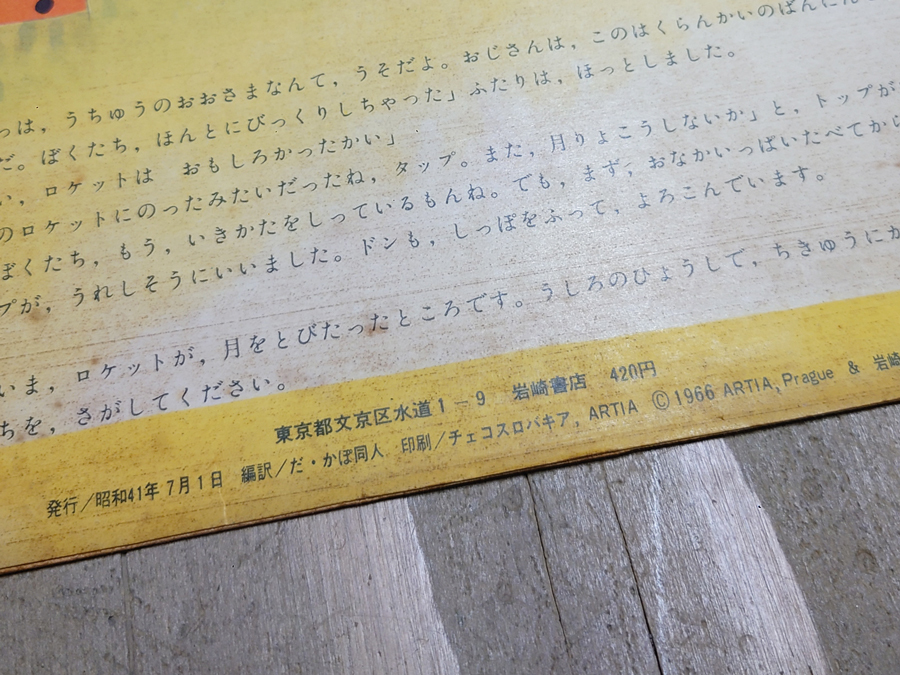 は，うちゅうのおおさまなんて，うそだよ。おじさんは，このはくらんかいのばんにん
だ。ぼくたち，ほんとにびっくりしちゃった」ふたりは，ほっとしました。
い，ロケットは　おもしろかったかい」
のロケットにのったみたいだったね，タップ。また，月りょこうしないか」と，トップが
ぼくたち，もう，いきかたをしっているもんね。でも，まず，おなかいっぱいたべてから
プが，うれしそうにいいました。ドンも，しっぽをふって，よろこんでいます。
いま，ロケットが，月をとびたったところです。うしろのひょうしで，ちきゅうに
ちを，さがしてください。
東京都文京区水道1－9　岩崎書店　420円
発行／昭和41年7月1日　編訳／だ・かぽ同人　印刷／チェコスロバキア, ARTIA　©1966 ARTIA, Prague & 岩崎